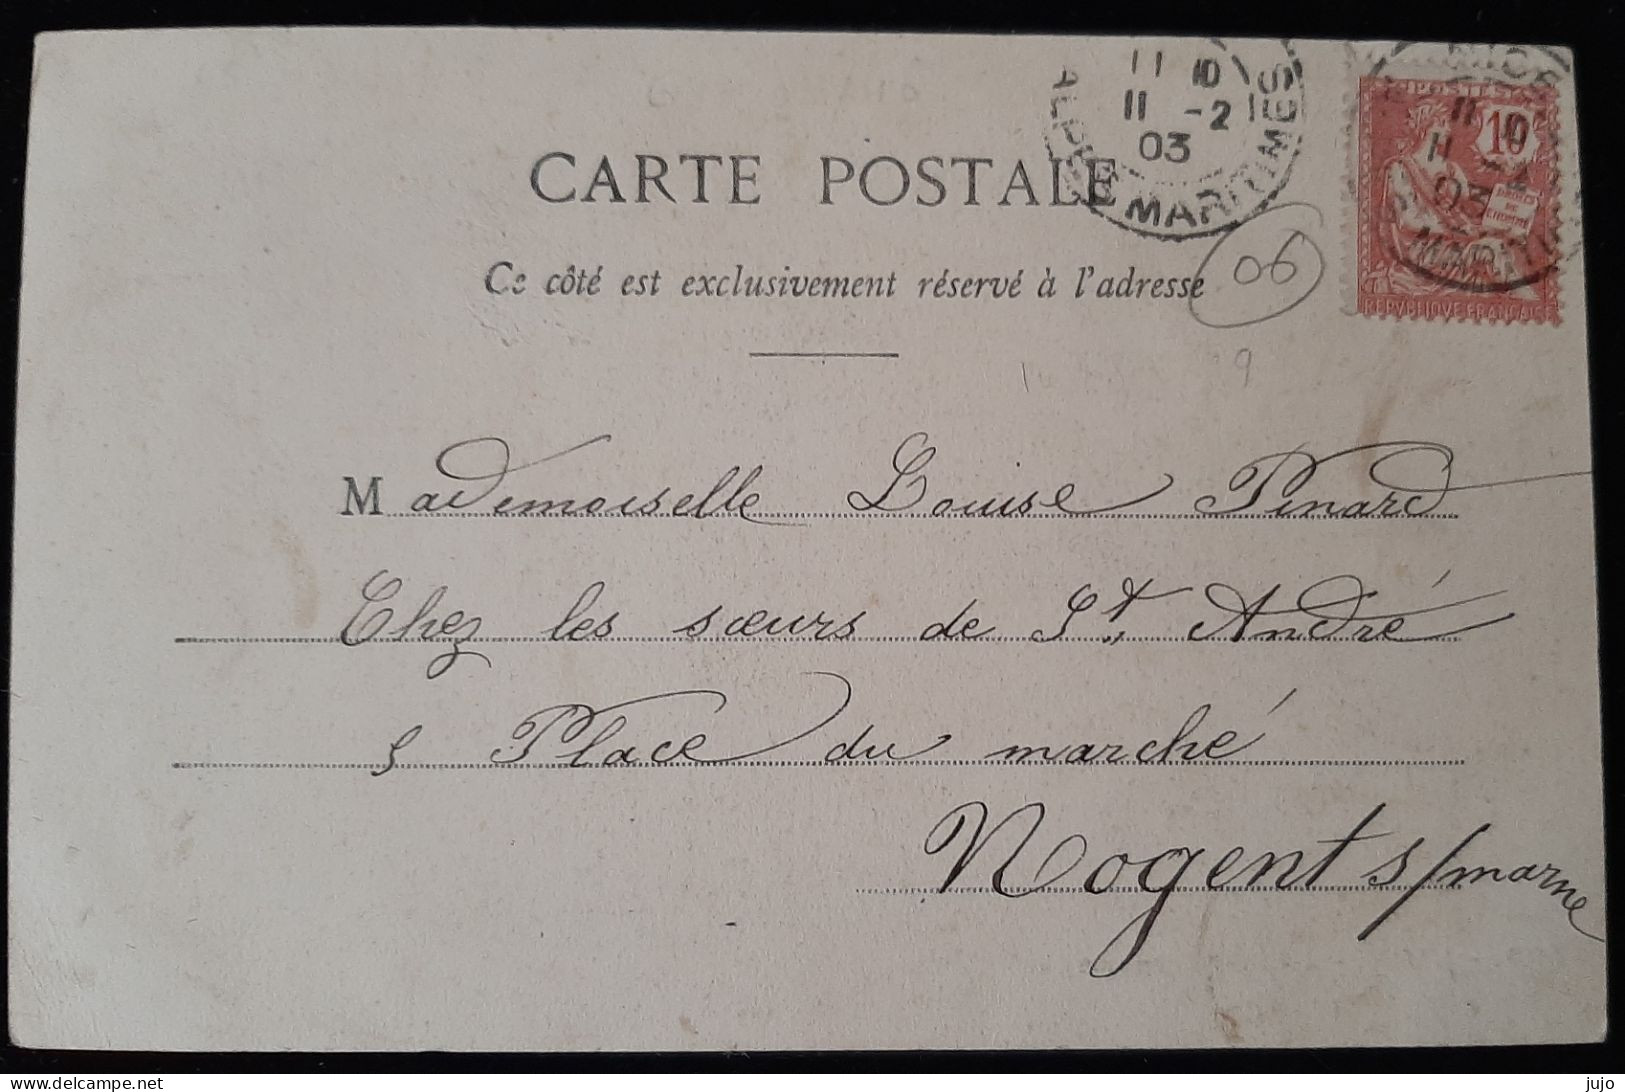 11 10
11 -2
03
ALPES MARITIMES
NICE
11 10
11
03
MARITIMES
POSTES
10
DROITS
DE
L'HOMME
REPVBLIQVE FRANÇAISE
CARTE POSTALE
Ce côté est exclusivement réservé à l'adresse
06
9
Mademoiselle Louise Pinard
Chez les sœurs de St. André
5 Place du marché
Nogent s/marne
Delcampe.net
jujo